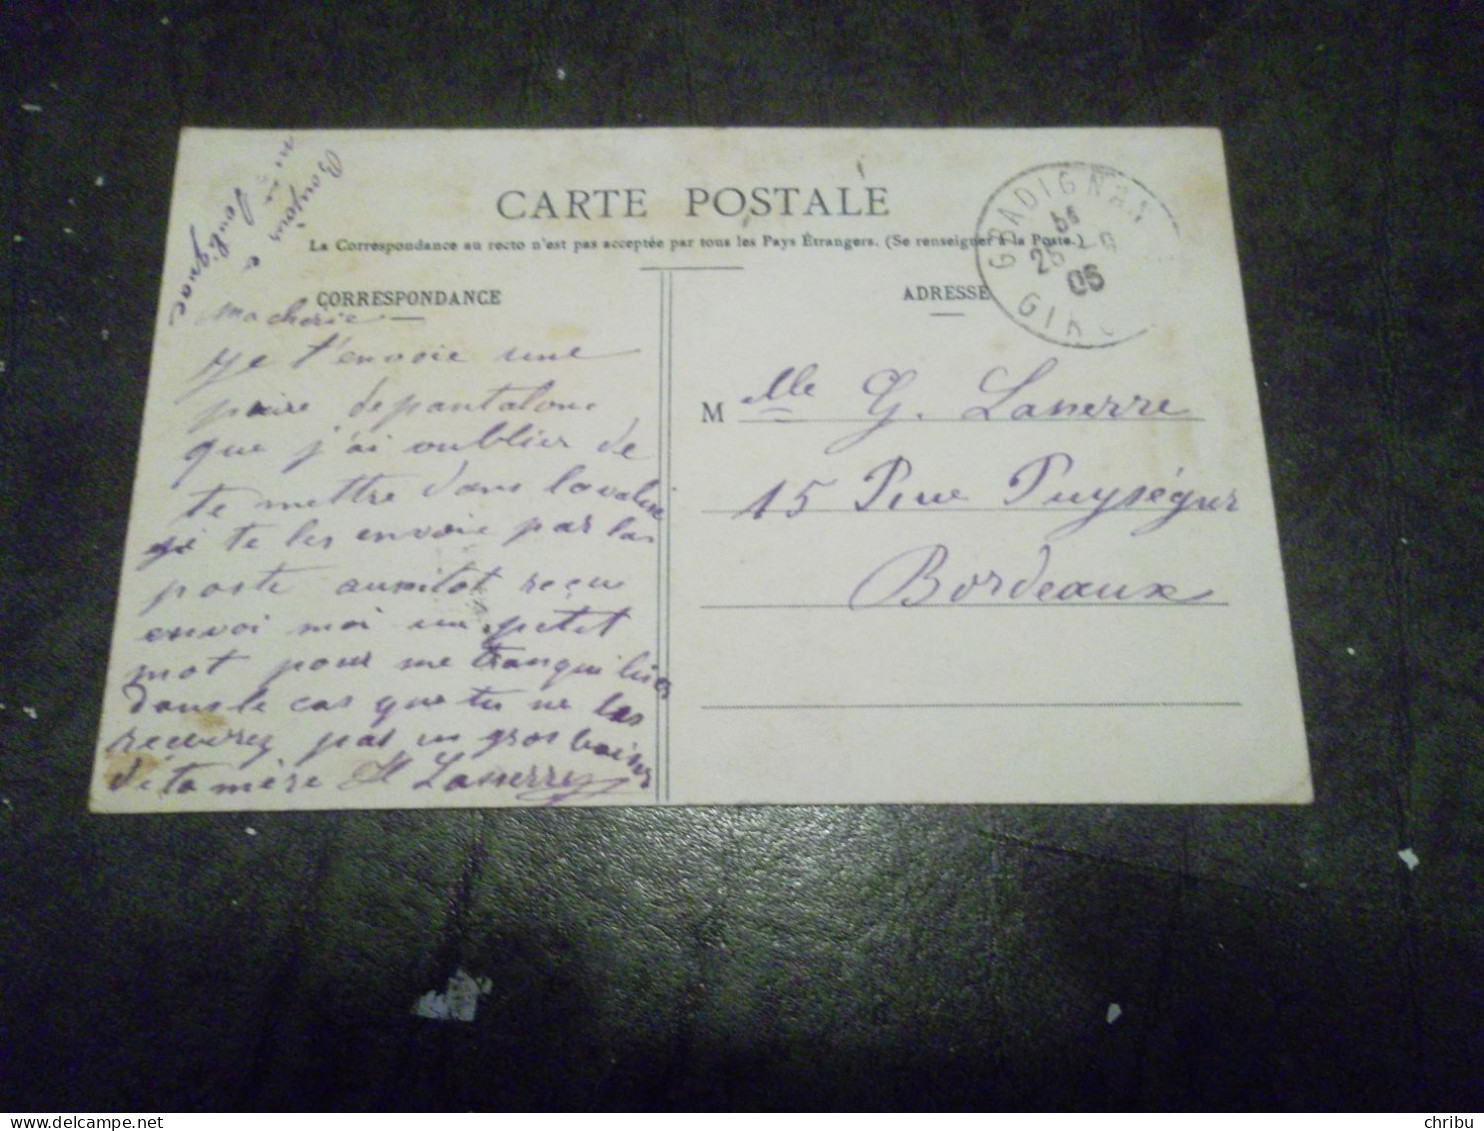 CARTE POSTALE
La Correspondance au recto n'est pas acceptée par tous les Pays Étrangers. (Se renseigner à la Poste.)
CORRESPONDANCE
ADRESSE
GRADIGNAN
25
05
GIRO
ma cherie
je t'envoie une
paire de pantalons
que j'ai oublier de
te mettre dans la valise
je te les envoie par la
poste aussitot reçu
envoi moi un petit
mot pour me tranquiliser
dans le cas que tu ne les
recevrez pas un gros baiser
de ta mère Lanerre
M lle G. Lanerre
15 Rue Puységur
Bordeaux
chribu